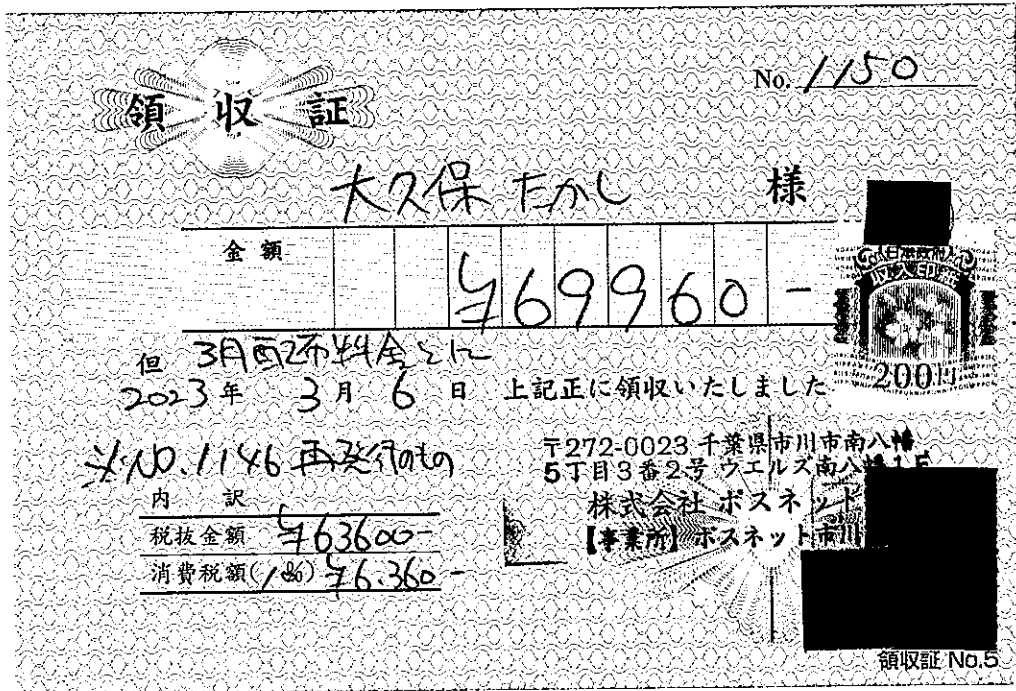 No. 1150
領収証
大久保 たかし 様
金額 ¥69960-
但 3月配布料金として
2023年 3月 6日 上記正に領収いたしました
日本政府
収入印紙
200円
※NO.1146 再発行のもの
内訳
税抜金額 ¥63600-
消費税額(10%) ¥6.360-
〒272-0023 千葉県市川市南八幡
5丁目3番2号 ウエルズ南八幡1F
株式会社 ポスネット
【事業所】ポスネット市川
領収証 No.5